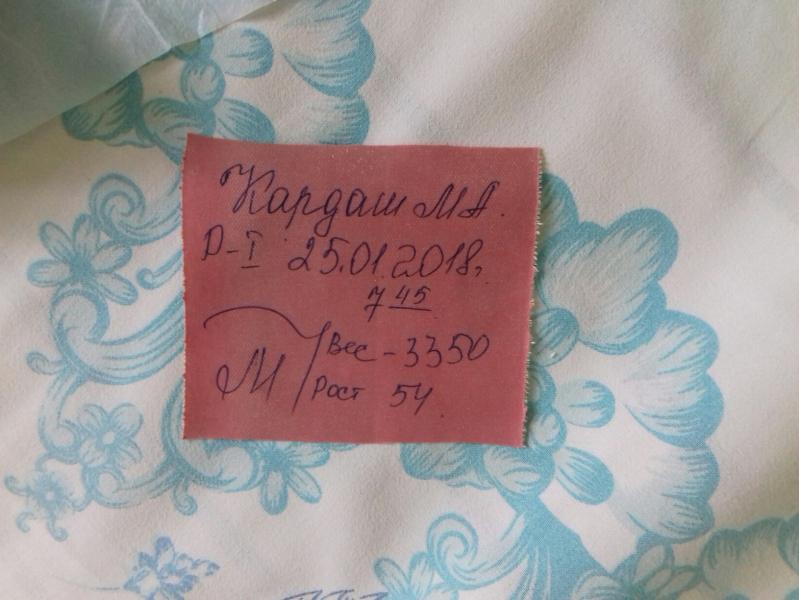 Кардаш М А.
Р-I 25.01.2018.
7 45
М / Вес - 3350
Рост 54